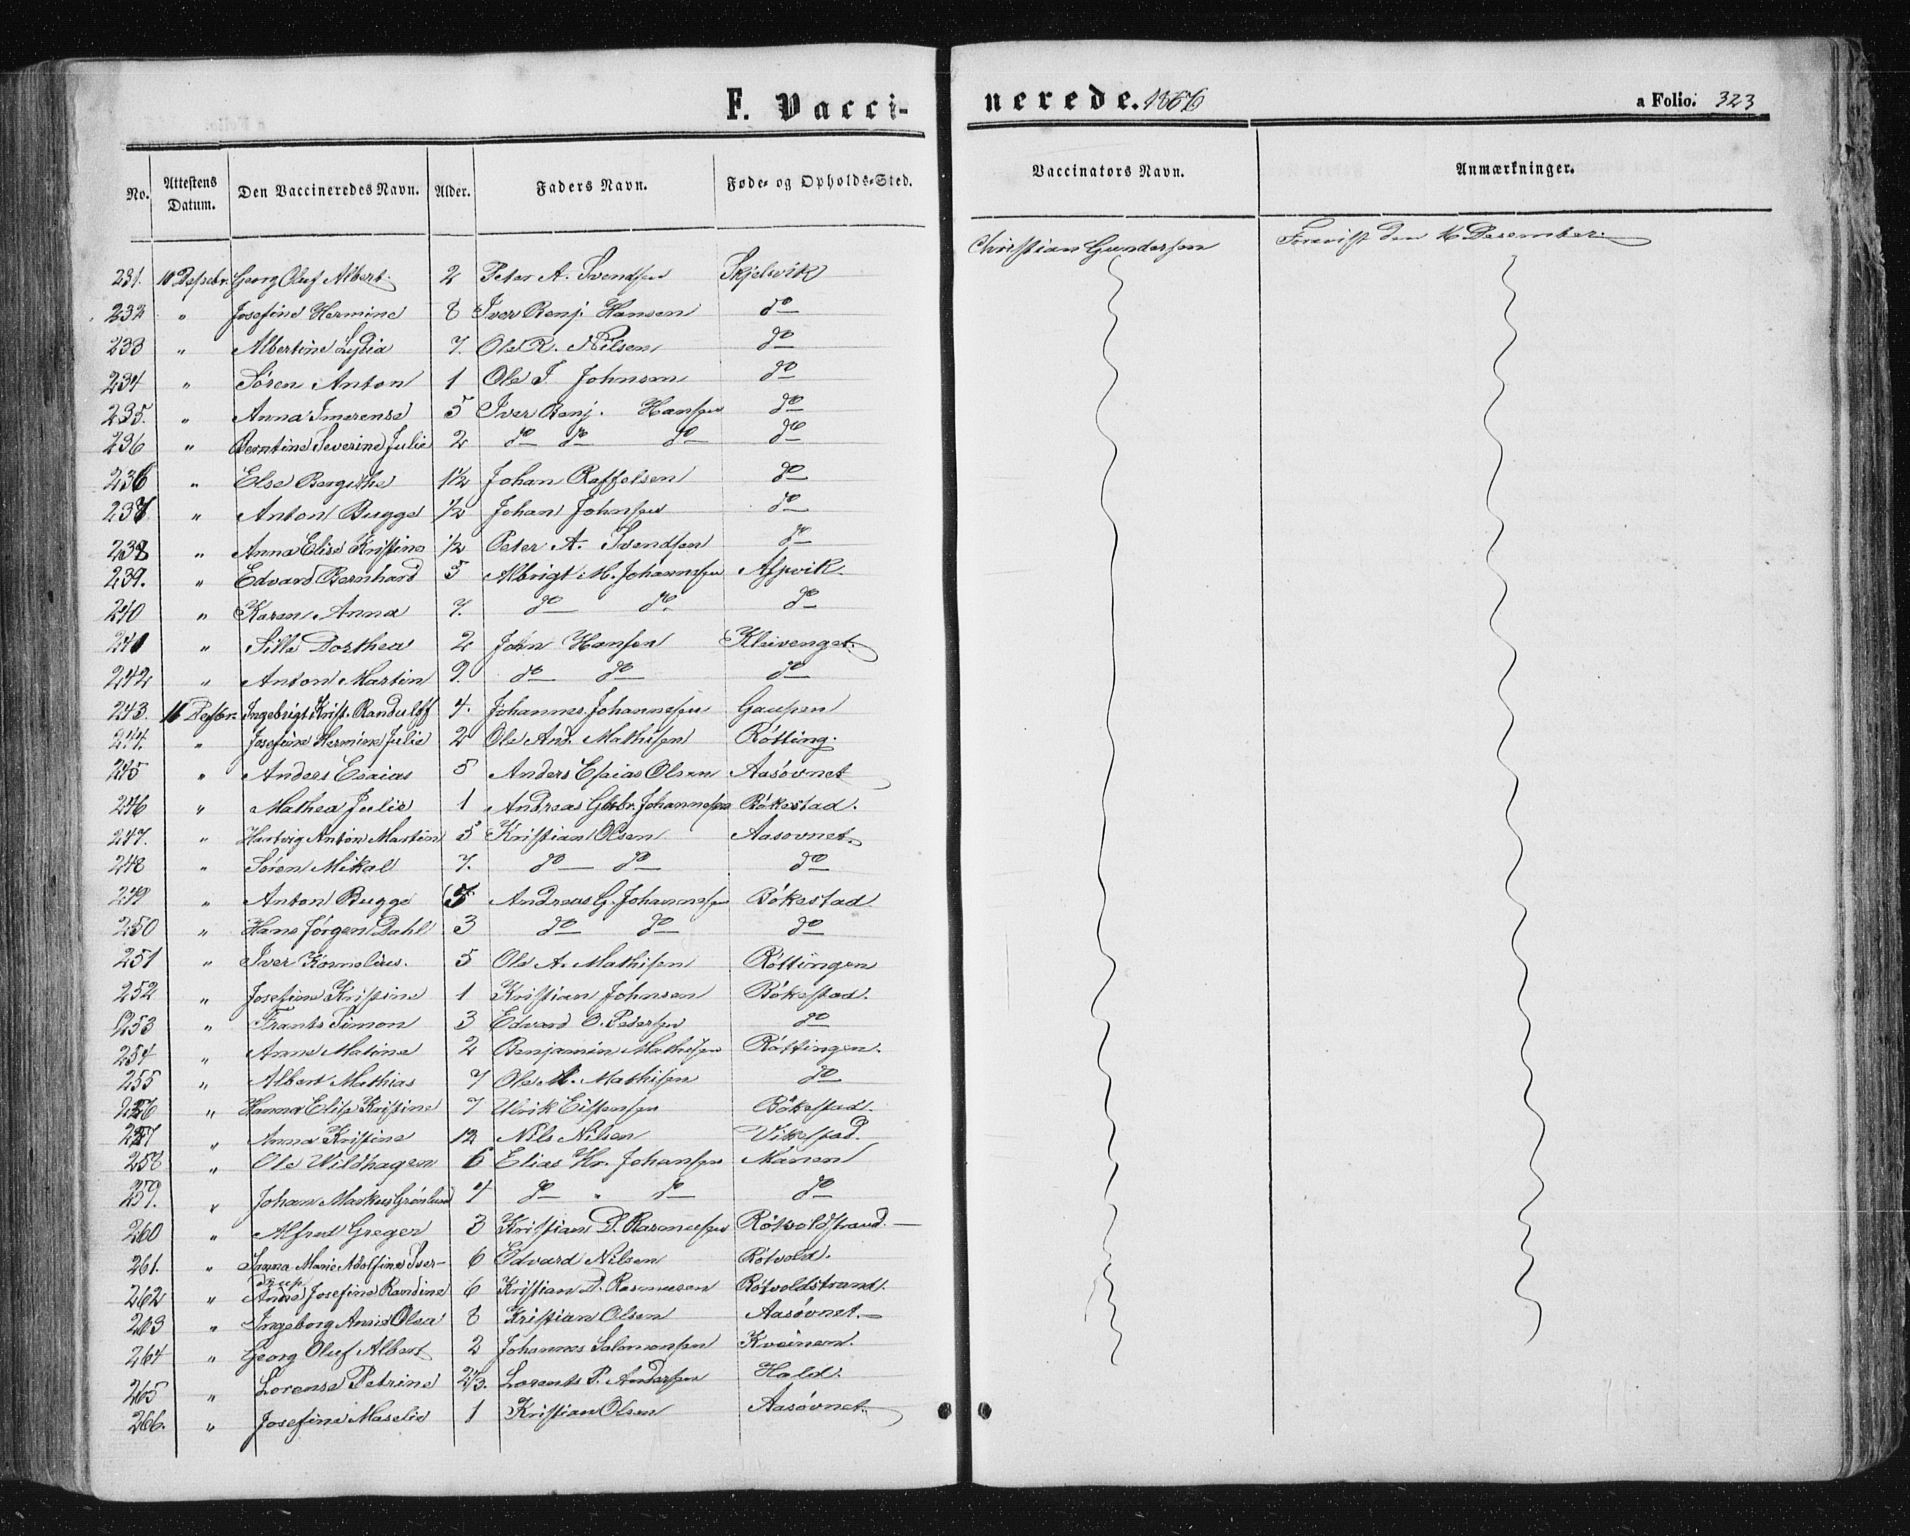 F. Vaccinerede. 1856
a Folio. 323
No. Attestens Datum. Den Vaccineredes Navn. Alder. Faders Navn. Føde- og Opholds-Sted. Vaccinators Navn. Anmærkninger.
231. 10 Georg Oluf Albert. 2 Peter A. Svendsen Skjelvik Christian Gundersen Forevist den 16 Desember
232 " Josefine Hermine 8 Iver Benj. Hansen do
233 " Albertine Lydia 7. Ole R. Nilsen do
234 " Søren Anton 1 Ole J. Johnsen do
235. " Anna Imerense 5 Iver Benj. Hansen do
236 " Berntine Severine Julie 2 do do do do
236 " Else Bergithe 1½ Johan Raffelsen do
237 " Anton Bugge ½ Johan Johnsen do
238 " Anna Elise Kristine ½ Peter A. Svendsen do
239. " Edvard Bernhard 5 Albrigt M. Johannesen Aspvik.
240 " Karen Anna 7. do do do
241 " Sille Dorthea 2 John Hansen Kleivenget
242 " Anton Martin 9. do do do
243. 16 Desbr. Ingebrigt Krist. Randulff 4. Johannes Johannesen Gaupen
244. " Josefine Hermine Julie 2 Ole And. Mathisen Røtting.
245 " Anders Esaias 5 Anders Esaias Olsen Aasøvnet
246 " Mathea Julie 1 Andreas Johannesen Bökestad.
247. " Hartvig Anton Martin 5 Kristian Olsen Aasøvnet
248 " Søren Mikal 7. do do do
249 " Anton Bugge 5 Andreas G. Johannesen Bökestad
250 " Hans Jørgen Dahl 3 do do do
251 " Iver Kornelius. 5 Ole A. Mathisen Røttingen
252 " Josefine Kristine 1 Kristian Johnsen Bökestad.
253 " Frants Simon 3 Edvard O. Pedersen do
254 " Anne Maline 2 Benjamin Mathisen Røttingen.
255 " Albert Mathias 7 Ole A. Mathisen do
256 " Hanna Elise Kristine 7 Ulrik Eistensen Bökestad.
257 " Anna Kristine 12 Nils Nilsen Vikestad.
258 " Ole Wildhagen 6 Elias Kr. Johansen Marien
259. " Johan Markus Grønlund 4 do " do do
260 " Alfred Greger 3 Kristian D. Rasmussen Røtvoldstrand.
261. " Marie Adolfine 6 Edvard Nilsen Røtvold.
262 " Josefine Randine 6 Kristian D. Rasmussen Røtvoldstrand.
263 " Ingeborg Anna Olsa 8 Kristian Olsen Aasøvnet.
264 " Georg Oluf Albert 2 Johannes Salomonsen Kveinen.
265 " Lorense Petrine Lorents P. Andersen Hald.
266. " Josefine Maselie 1 Kristian Olsen Aasøvnet